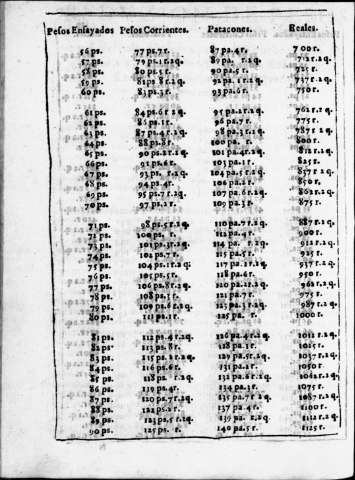 Pesos Ensayados Pesos Corrientes. Patacones. Reales.
56 ps. 77 ps.7 r. 87 pa.4 r. 700 r.
57 ps. 79 ps.1 r.2 q. 89 pa. r.2 q. 712 r.2 q.
58 ps. 80 ps.5 r. 90 pa.5 r. 725 r.
59 ps. 81 ps 8 r.2 q. 92 pa.1 r.2 q. 737 r.2 q.
60 ps. 83 ps.3 r. 93 pa.6 r. 750 r.
61 ps. 84 ps.6 r 2 q. 95 pa.2 r.2 q. 762 r.2 q.
62 ps. 86 ps.1 r. 96 pa.7 r. 775 r.
63 ps. 87 ps.4 r.2 q. 98 pa.3 r.2 q. 787 r 2 q.
64 ps. 88 ps.8 r. 100 pa. r. 800 r.
65 ps. 90 ps.2 r.2 q. 101 pa.4 r.2 q. 812 r.2 q.
66 ps. 91 ps.6 r. 103 pa.1 r. 825 r.
67 ps. 93 ps. r.2 q. 104 pa.5 r.2 q. 837 r 2 q.
68 ps. 94 ps.4 r. 106 pa.2 r. 850 r.
69 ps. 95 ps.7 r.2 q. 107 pa.6 r.2 q. 862 r.2 q.
70 ps. 97 ps.2 r. 109 pa.3 r. 875 r.
71 ps. 98 ps.5 r.2 q. 110 pa.7 r.2 q. 887 r.2 q.
72 ps. 100 ps. r. 112 pa.4 r. 900 r.
73 ps. 101 ps.3 r.2 q. 114 pa. r.2 q. 912 r.2 q.
74 ps. 102 ps.7 r. 115 pa.5 r. 925 r.
75 ps. 104 ps.1 r.2 q. 117 pa.1 r.2 q. 937 r.2 q.
76 ps. 105 ps.5 r. 118 pa.6 r. 950 r.
77 ps. 106 ps.8 r.2 q. 120 pa.2 r.2 q. 962 r.2 q.
78 ps. 108 ps.3 r. 121 pa.7 r. 975 r.
79 ps. 109 ps.6 r.2 q. 123 pa.3 r.2 q. 987 r.2 q.
80 ps. 111 ps.1 r. 125 pa. r. 1000 r.
81 ps. 112 ps.4 r.2 q. 126 pa.4 r.2 q. 1012 r.2 q.
82 ps. 113 ps.8 r. 128 pa.1 r. 1025 r.
83 ps. 115 ps.2 r.2 q. 129 pa.5 r.2 q. 1037 r.2 q.
84 ps. 116 ps.6 r. 131 pa.2 r. 1050 r.
85 ps. 118 ps. r.2 q. 132 pa.6 r.2 q. 1062 r.2 q.
86 ps. 119 ps.4 r. 134 pa.3 r. 1075 r.
87 ps. 120 ps.7 r.2 q. 135 pa.7 r 2 q. 1087 r.2 q.
88 ps. 122 ps.2 r. 137 pa.4 r. 1100 r.
89 ps. 123 ps.5 r.2 q. 139 pa. r.2 q. 1112 r.2 q.
90 ps. 125 ps. r. 140 pa.5 r. 1125 r.